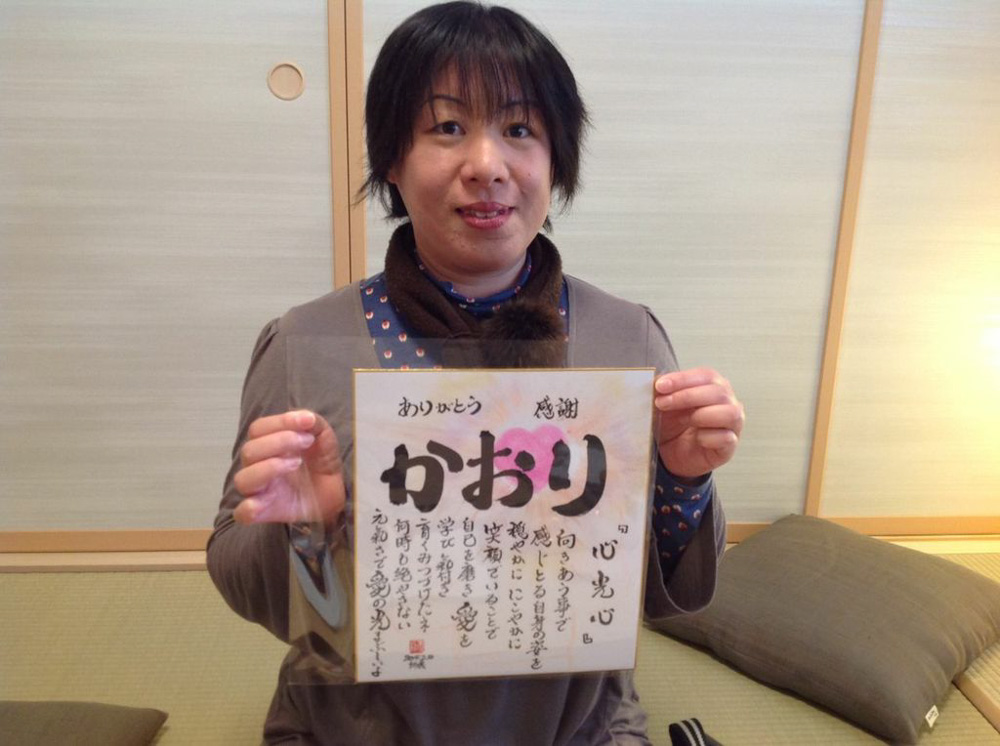 ありがとう　感謝
かおり
『心光心』
向きあう事で
感じとる自身の姿を
穏やかに にこやかに
笑顔でいることで
自己を磨き 愛を
学び 気付き
育くみつづけたネ
何時も絶やさない
元気さで愛の光まぶしいよ